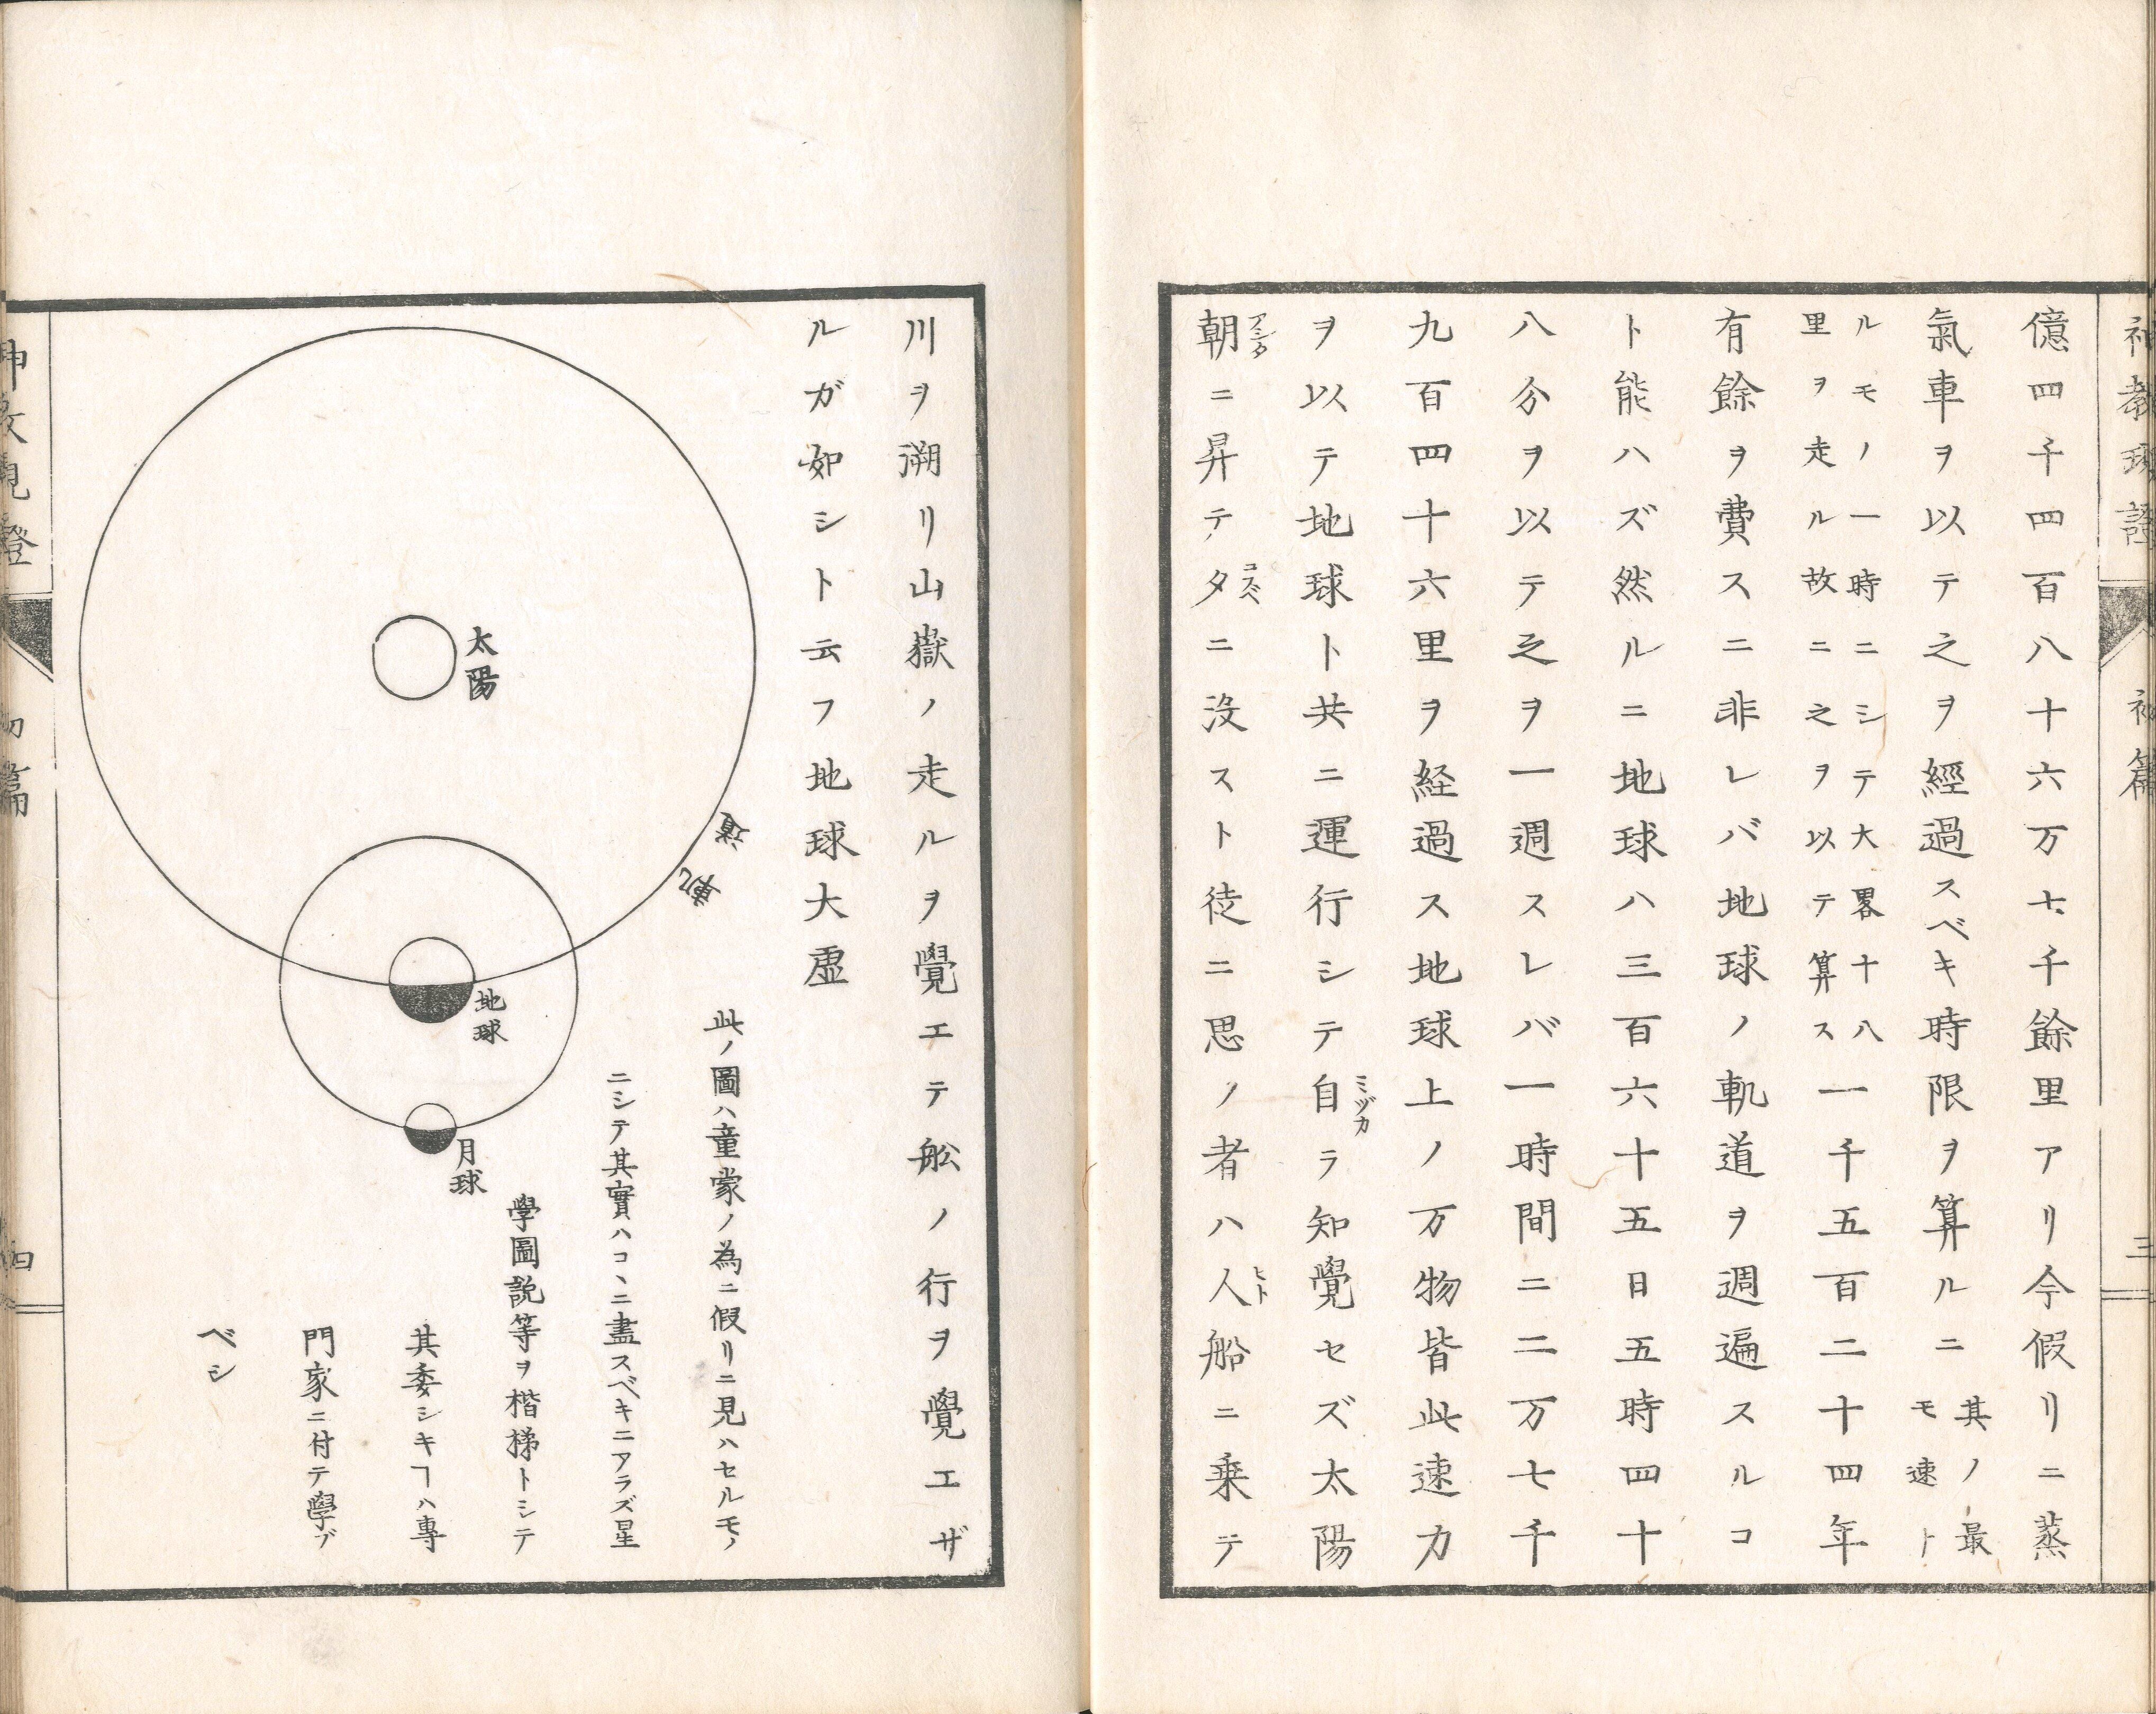 億四千四百八十六万七千餘里アリ今假リニ蒸
氣車ヲ以テ之ヲ經過スベキ時限ヲ算ルニ其ノ最
モ速ト
ルモノ一時ニシテ大畧十八
里ヲ走ル故ニ之ヲ以テ算ス
一千五百二十四年
有餘ヲ費スニ非レバ地球ノ軌道ヲ週遍スルコ
ト能ハズ然ルニ地球ハ三百六十五日五時四十
八分ヲ以テ之ヲ一週スレバ一時間ニ二万七千
九百四十六里ヲ経過ス地球上ノ万物皆此速力
ヲ以テ地球ト共ニ運行シテ自ミヅカラ知覺セズ太陽
朝アシタニ昇テタニ没スト徒ニ思ノ者ハ人ヒト船ニ乗テ
神教現證
初篇
三
川ヲ溯リ山嶽ノ走ルヲ覺エテ舩ノ行ヲ覺エザ
ルガ如シト云フ地球大虚
此ノ圖ハ童蒙ノ為ニ假リニ見ハセルモノ
ニシテ其實ハコヽニ盡スベキニアラズ星
學圖説等ヲ楷梯トシテ
其委シキヿハ專
門家ニ付テ學ブ
ベシ
太陽
軌道
地球
月球
初篇
四